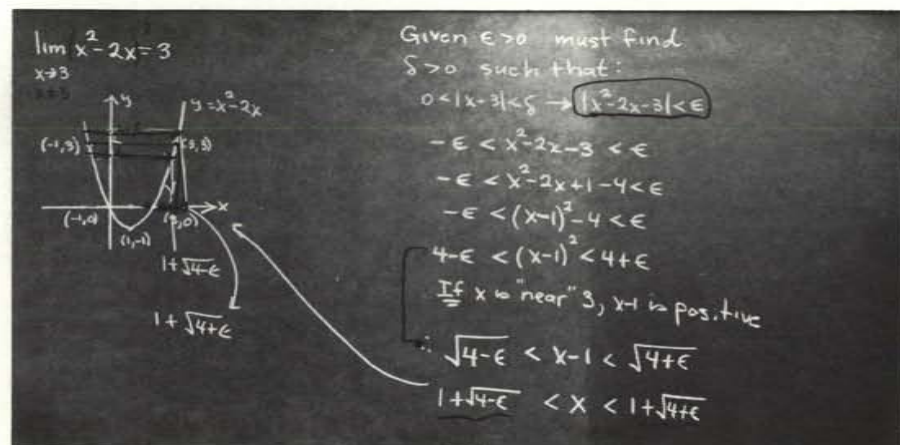 lim x²-2x=3
x→3
y
y=x²-2x
(-1,3)
(3,3)
x
(-1,0)
(3,0)
(1,-1)
1+√4-ϵ
1+√4+ϵ
Given ϵ>0 must find
δ>0 such that:
0<|x-3|<δ → |x²-2x-3|<ϵ
-ϵ < x²-2x-3 < ϵ
-ϵ < x²-2x+1-4<ϵ
-ϵ < (x-1)²-4 < ϵ
4-ϵ < (x-1)² < 4+ϵ
If x is "near" 3, x-1 is positive
∴ √4-ϵ < x-1 < √4+ϵ
1+√4-ϵ < x < 1+√4+ϵ